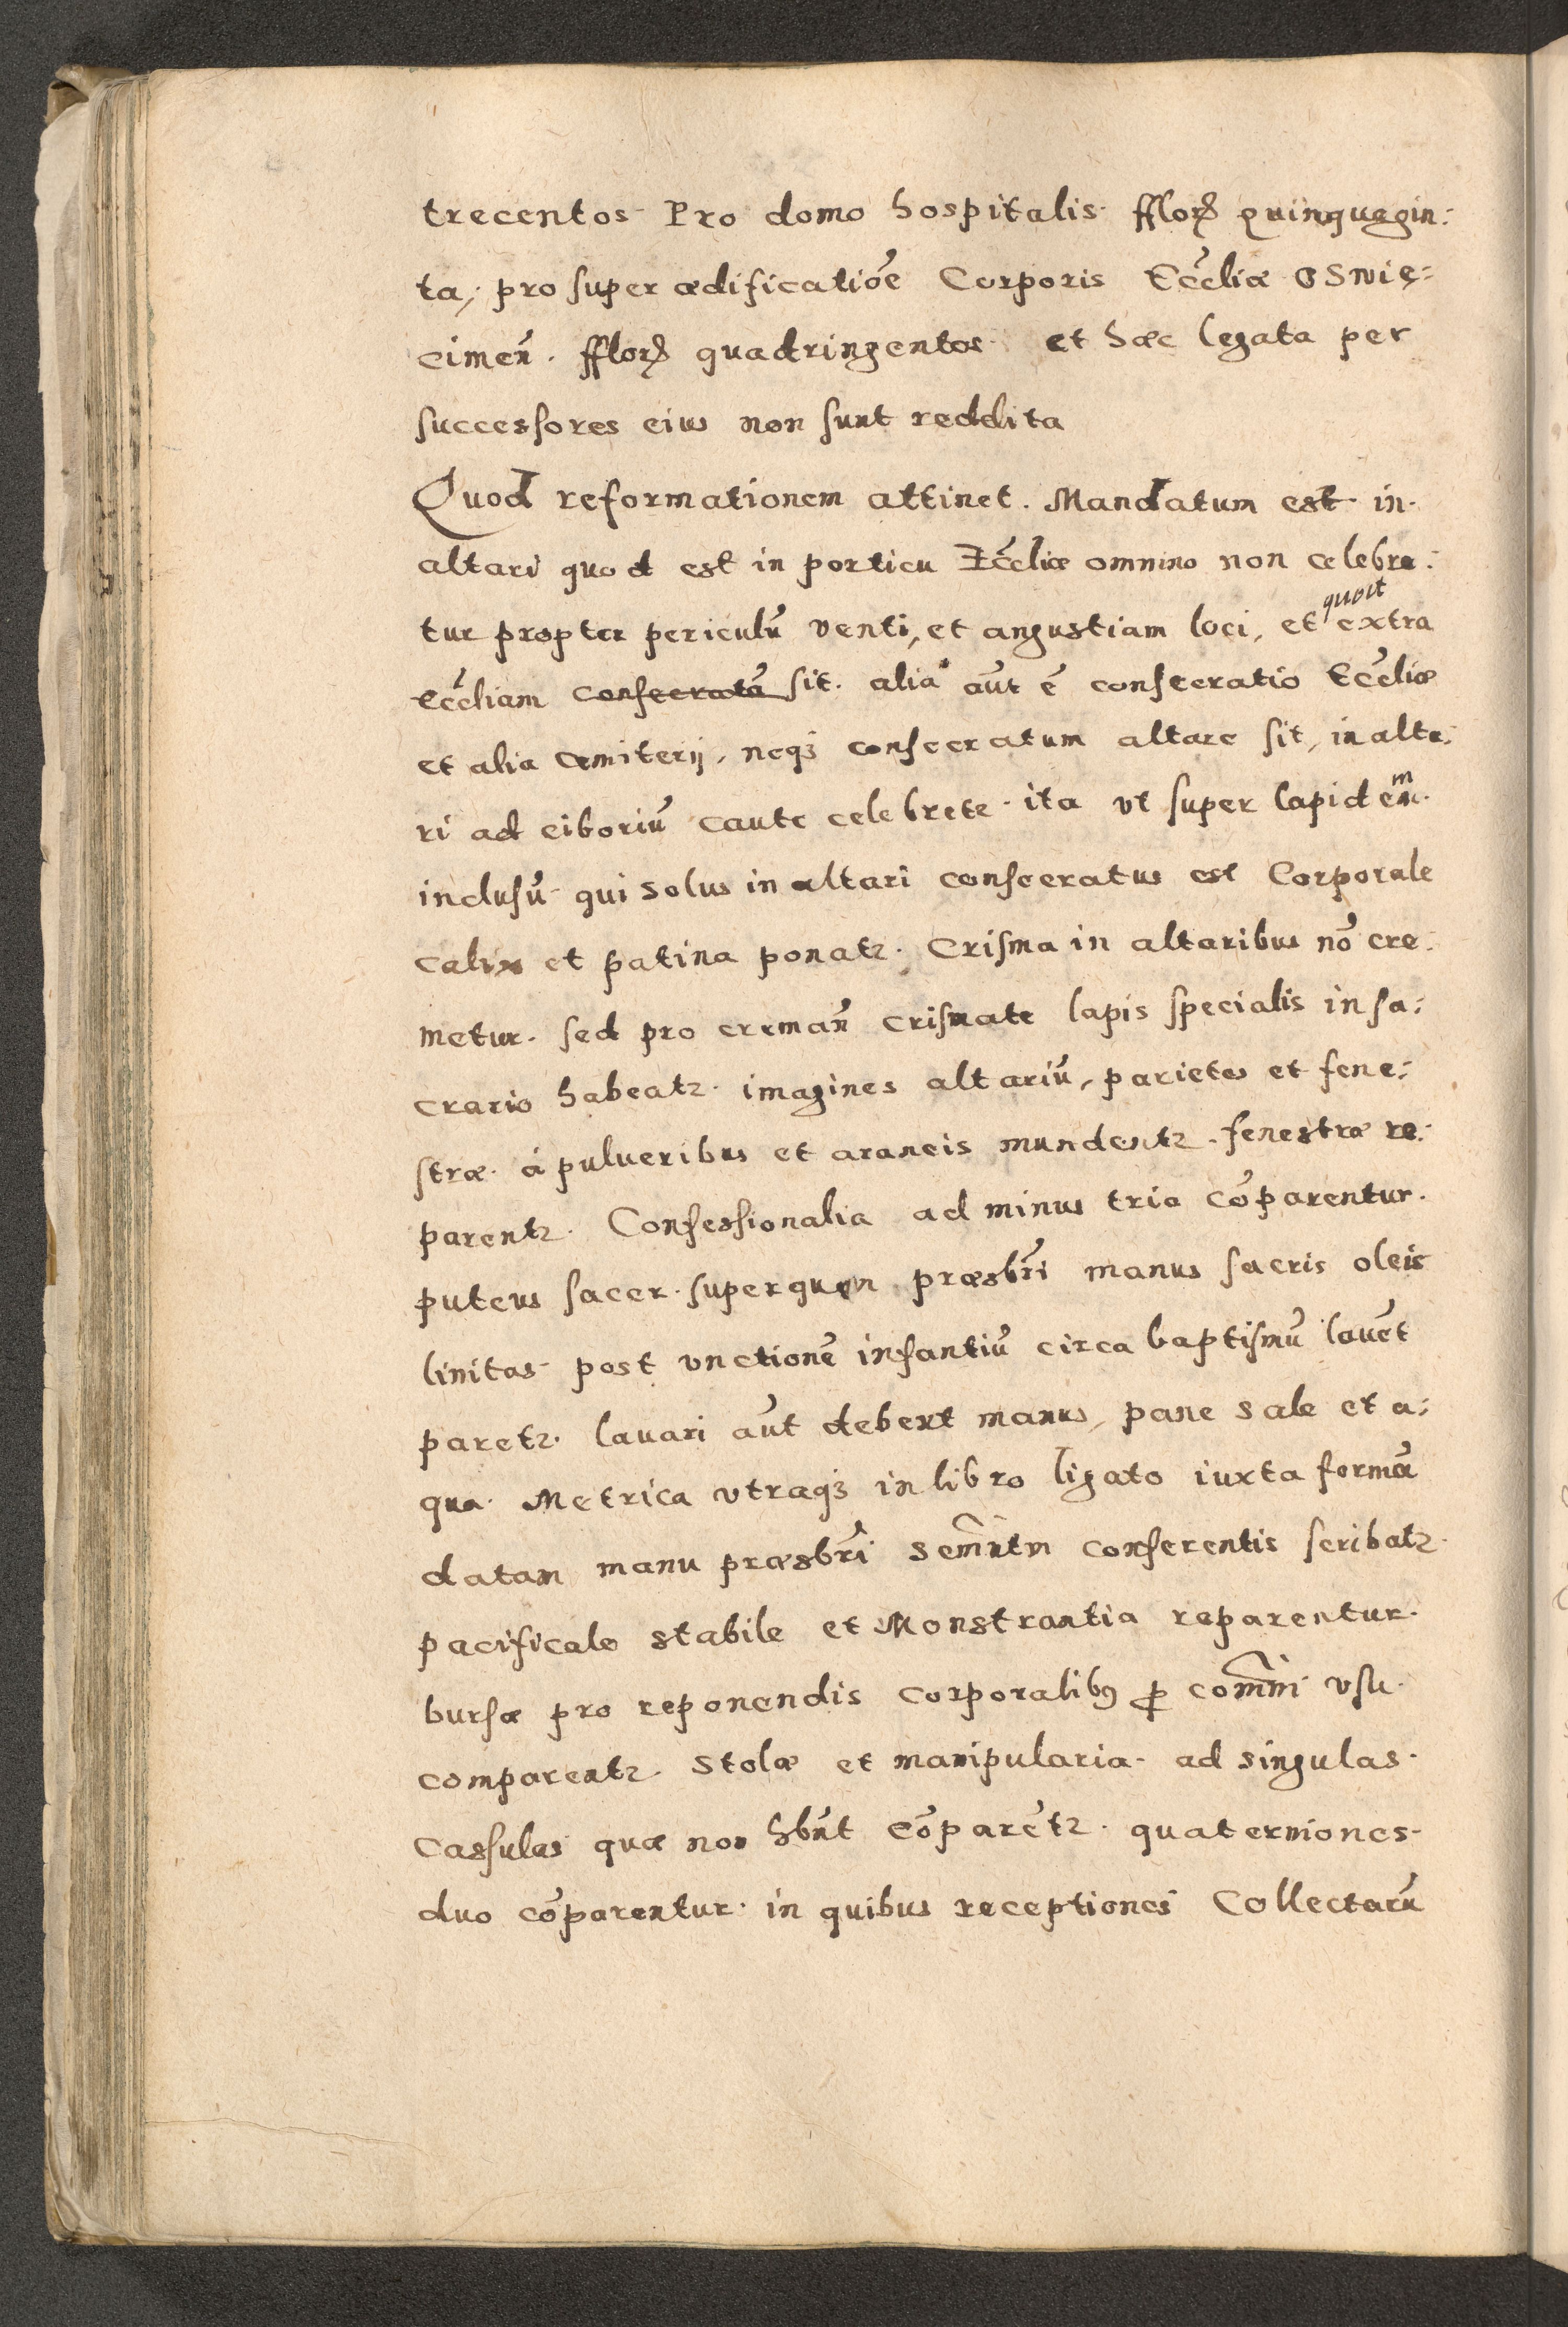 trecentos. Pro domo hospitalis. fflorꝝ quinquagin:
ta, pro super ædificatiōe Corporis Eccl̄iæ OSwię:
cimen̄. fflorꝝ quadringentos et hæc legata per
successores eius non sunt reddita
Quod reformationem attinet. Mandatum est. in.
altari quod est in porticu Eccl̄iæ omnino non celebre:
tur propter periculū venti, et angustiam loci, et extra
eccl̄iam consecratā sit. alia aūt ē consecratio Eccl̄iæ
et alia cæmiterij, neqꝫ consecratum altare sit, in alta:
ri ad ciboriū caute celebrete. ita vt super lapidem.
inclusū qui solus in altari consecratus est Corporale
calix et patina ponatꝛ. Crisma in altaribus nō cre:
metur. sed pro creman̄ crismate lapis specialis in sa:
crario habeatꝛ. imagines altariū, parietes et fene:
stræ. á pulueribus et araneis mundentꝛ. fenestræ re:
parentꝛ. Confessionalia ad minus tria cōparentur.
puteus sacer. super quem præsbr̄i manus sacris oleis
linitas post vnctionē infantiū circa baptismū lauēt
paretꝛ. lauari aūt debent manus, pane sale et a:
qua. Metrica vtraqꝫ in libro ligato iuxta formā
datam manu præsbr̄i Secram̄tm conferentis scribatꝛ.
pacificale stabile et Monstrantia reparentur.
bursæ pro reponendis corporalibꝰ ꝑ com̄ni vsu.
comparentꝛ. Stolæ et manipularia. ad singulas.
Cassulas quæ non hb̄nt cōparētꝛ. quaterniones.
duo cōparentur. in quibus receptiones Collectarū